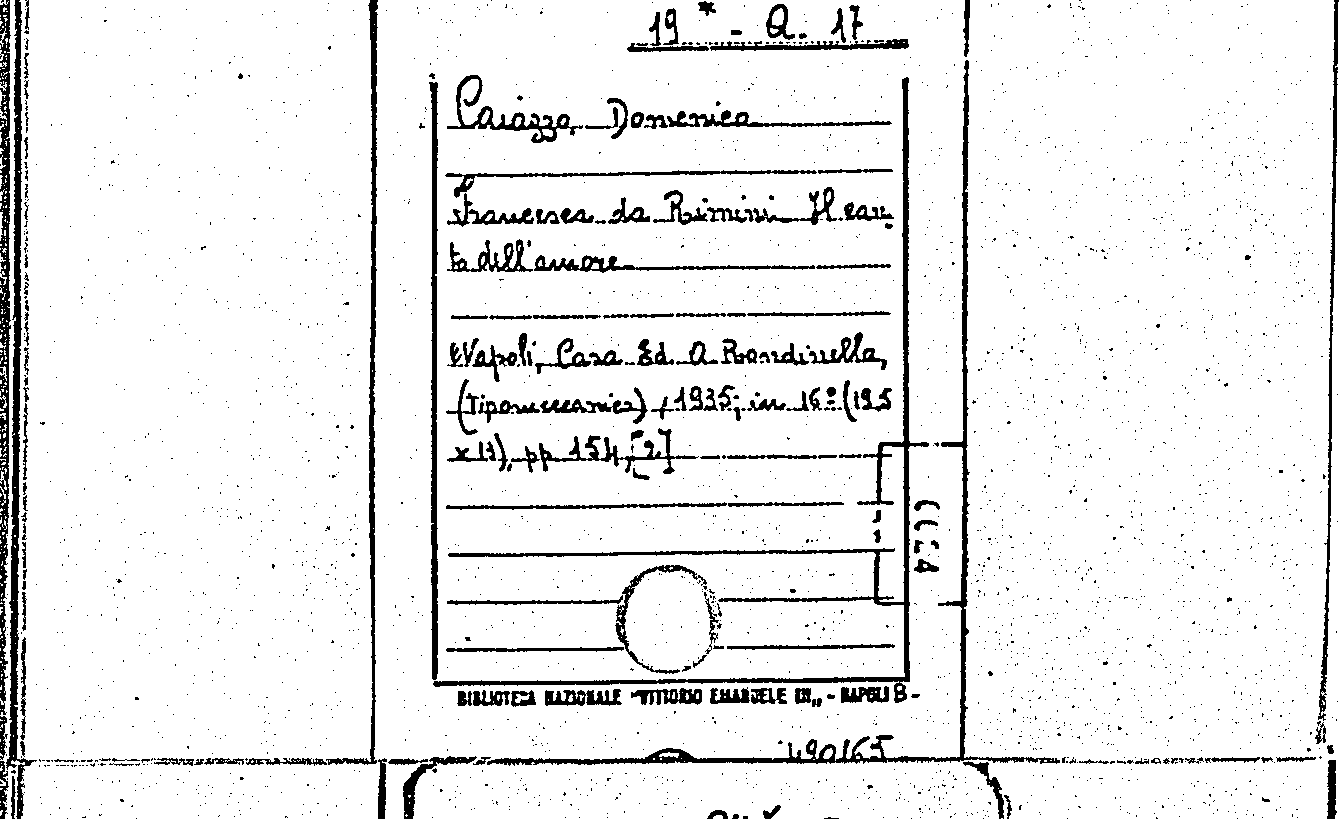 19* - Q. 17
Caiazzo, Domenico
Francesca da Rimini. Il can-
to dell'amore
Napoli, Casa Ed. A. Rondinella,
(Tipomeccanica), 1935; in 16º (19,5
x 13), pp. 154, [2]
BIBLIOTECA NAZIONALE "VITTORIO EMANUELE III„ - NAPOLI B-
490165